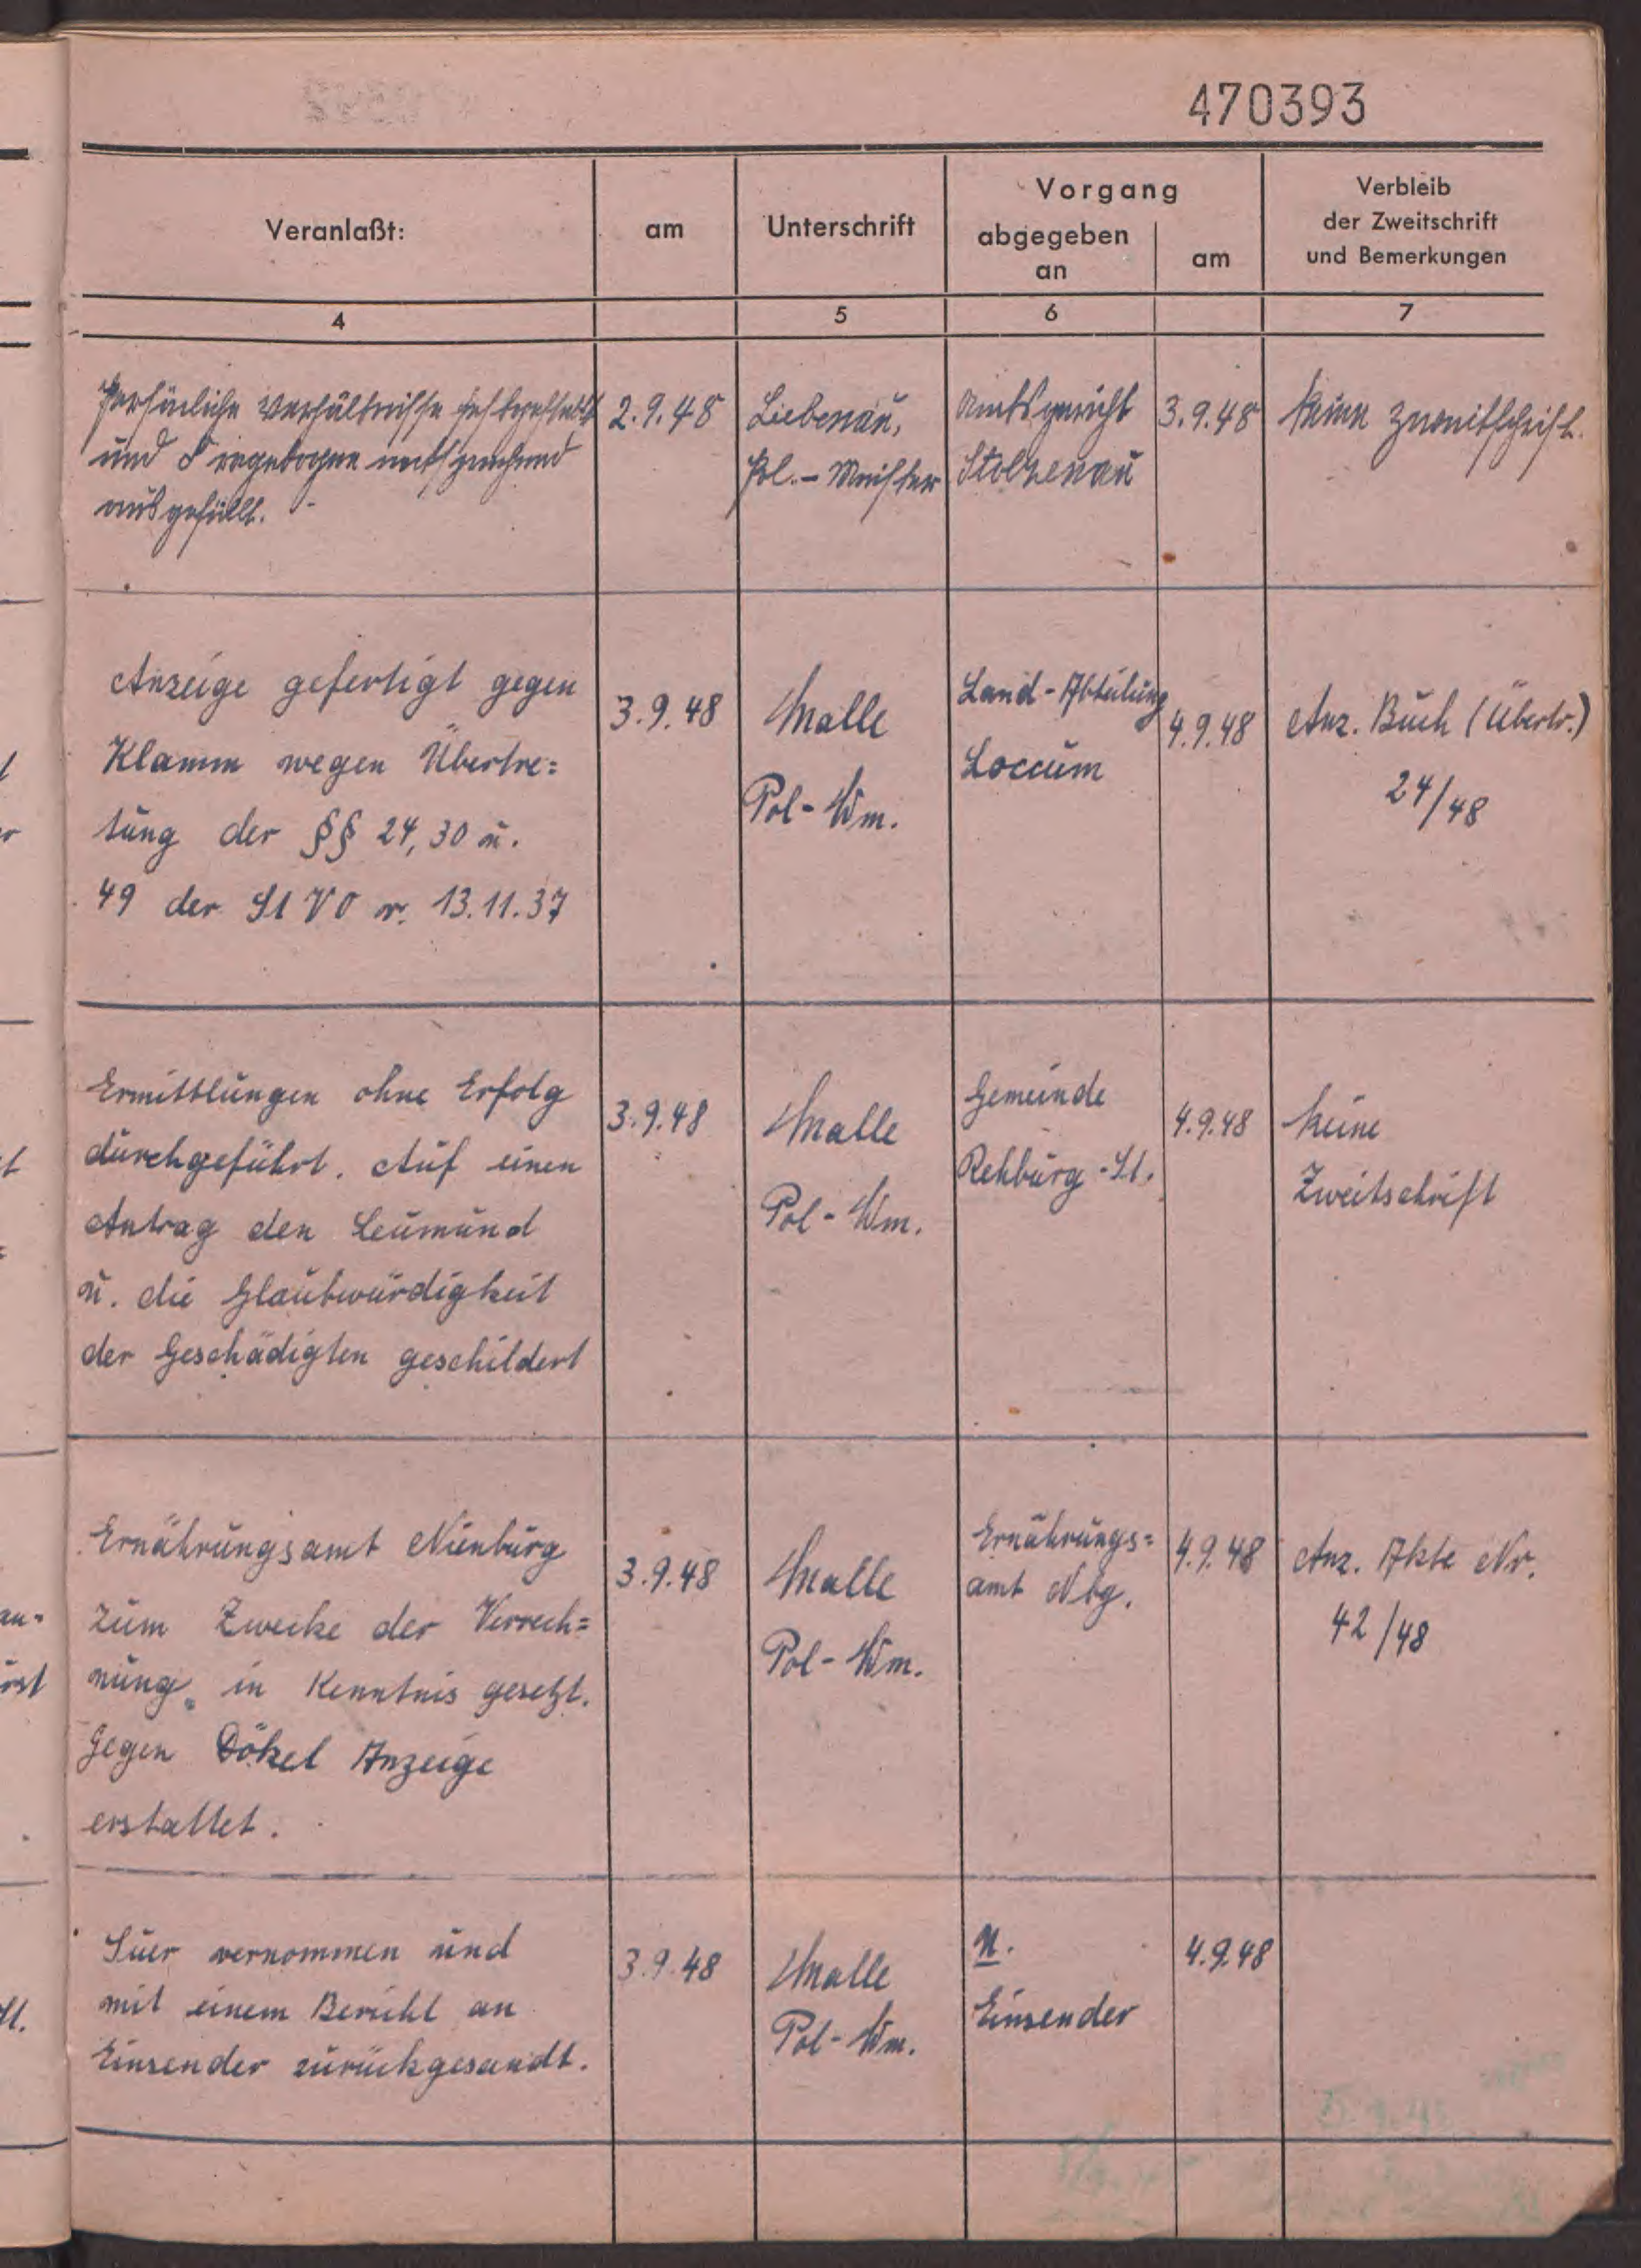 470393
Veranlaßt:
am
Unterschrift
Vorgang
abgegeben
an
am
Verbleib
der Zweitschrift
und Bemerkungen
4
5
6
7
Persönliche Verhältnisse festgestellt
und Fragebogen entsprechend
ausgefüllt.
2.9.48
Liebenau,
Pol.-Meister
Amtsgericht
Stolzenau
3.9.48
Keine Zweitschrift.
Anzeige gefertigt gegen
Klamm wegen Übertre=
tung der §§ 24, 30 u.
49 der StVO v. 13.11.37
3.9.48
Malle
Pol-Wm.
Land-Abteilung
Loccum
4.9.48
Anz. Buch (Übertr.)
24/48
Ermittlungen ohne Erfolg
durchgeführt. Auf einen
Antrag den Leumund
u. die Glaubwürdigkeit
der Geschädigten geschildert
3.9.48
Malle
Pol-Wm.
Gemeinde
Rehburg-St.
4.9.48
Keine
Zweitschrift
Ernährungsamt Nienburg
zum Zwecke der Verrech=
nung in Kenntnis gesetzt.
Gegen Dökel Anzeige
erstattet.
3.9.48
Malle
Pol-Wm.
Ernährungs=
amt Nbg.
4.9.48
Anz. Akte Nr.
42/48
Suer vernommen und
mit einem Bericht an
Einsender zurückgesandt.
3.9.48
Malle
Pol-Wm.
Einsender
4.9.48